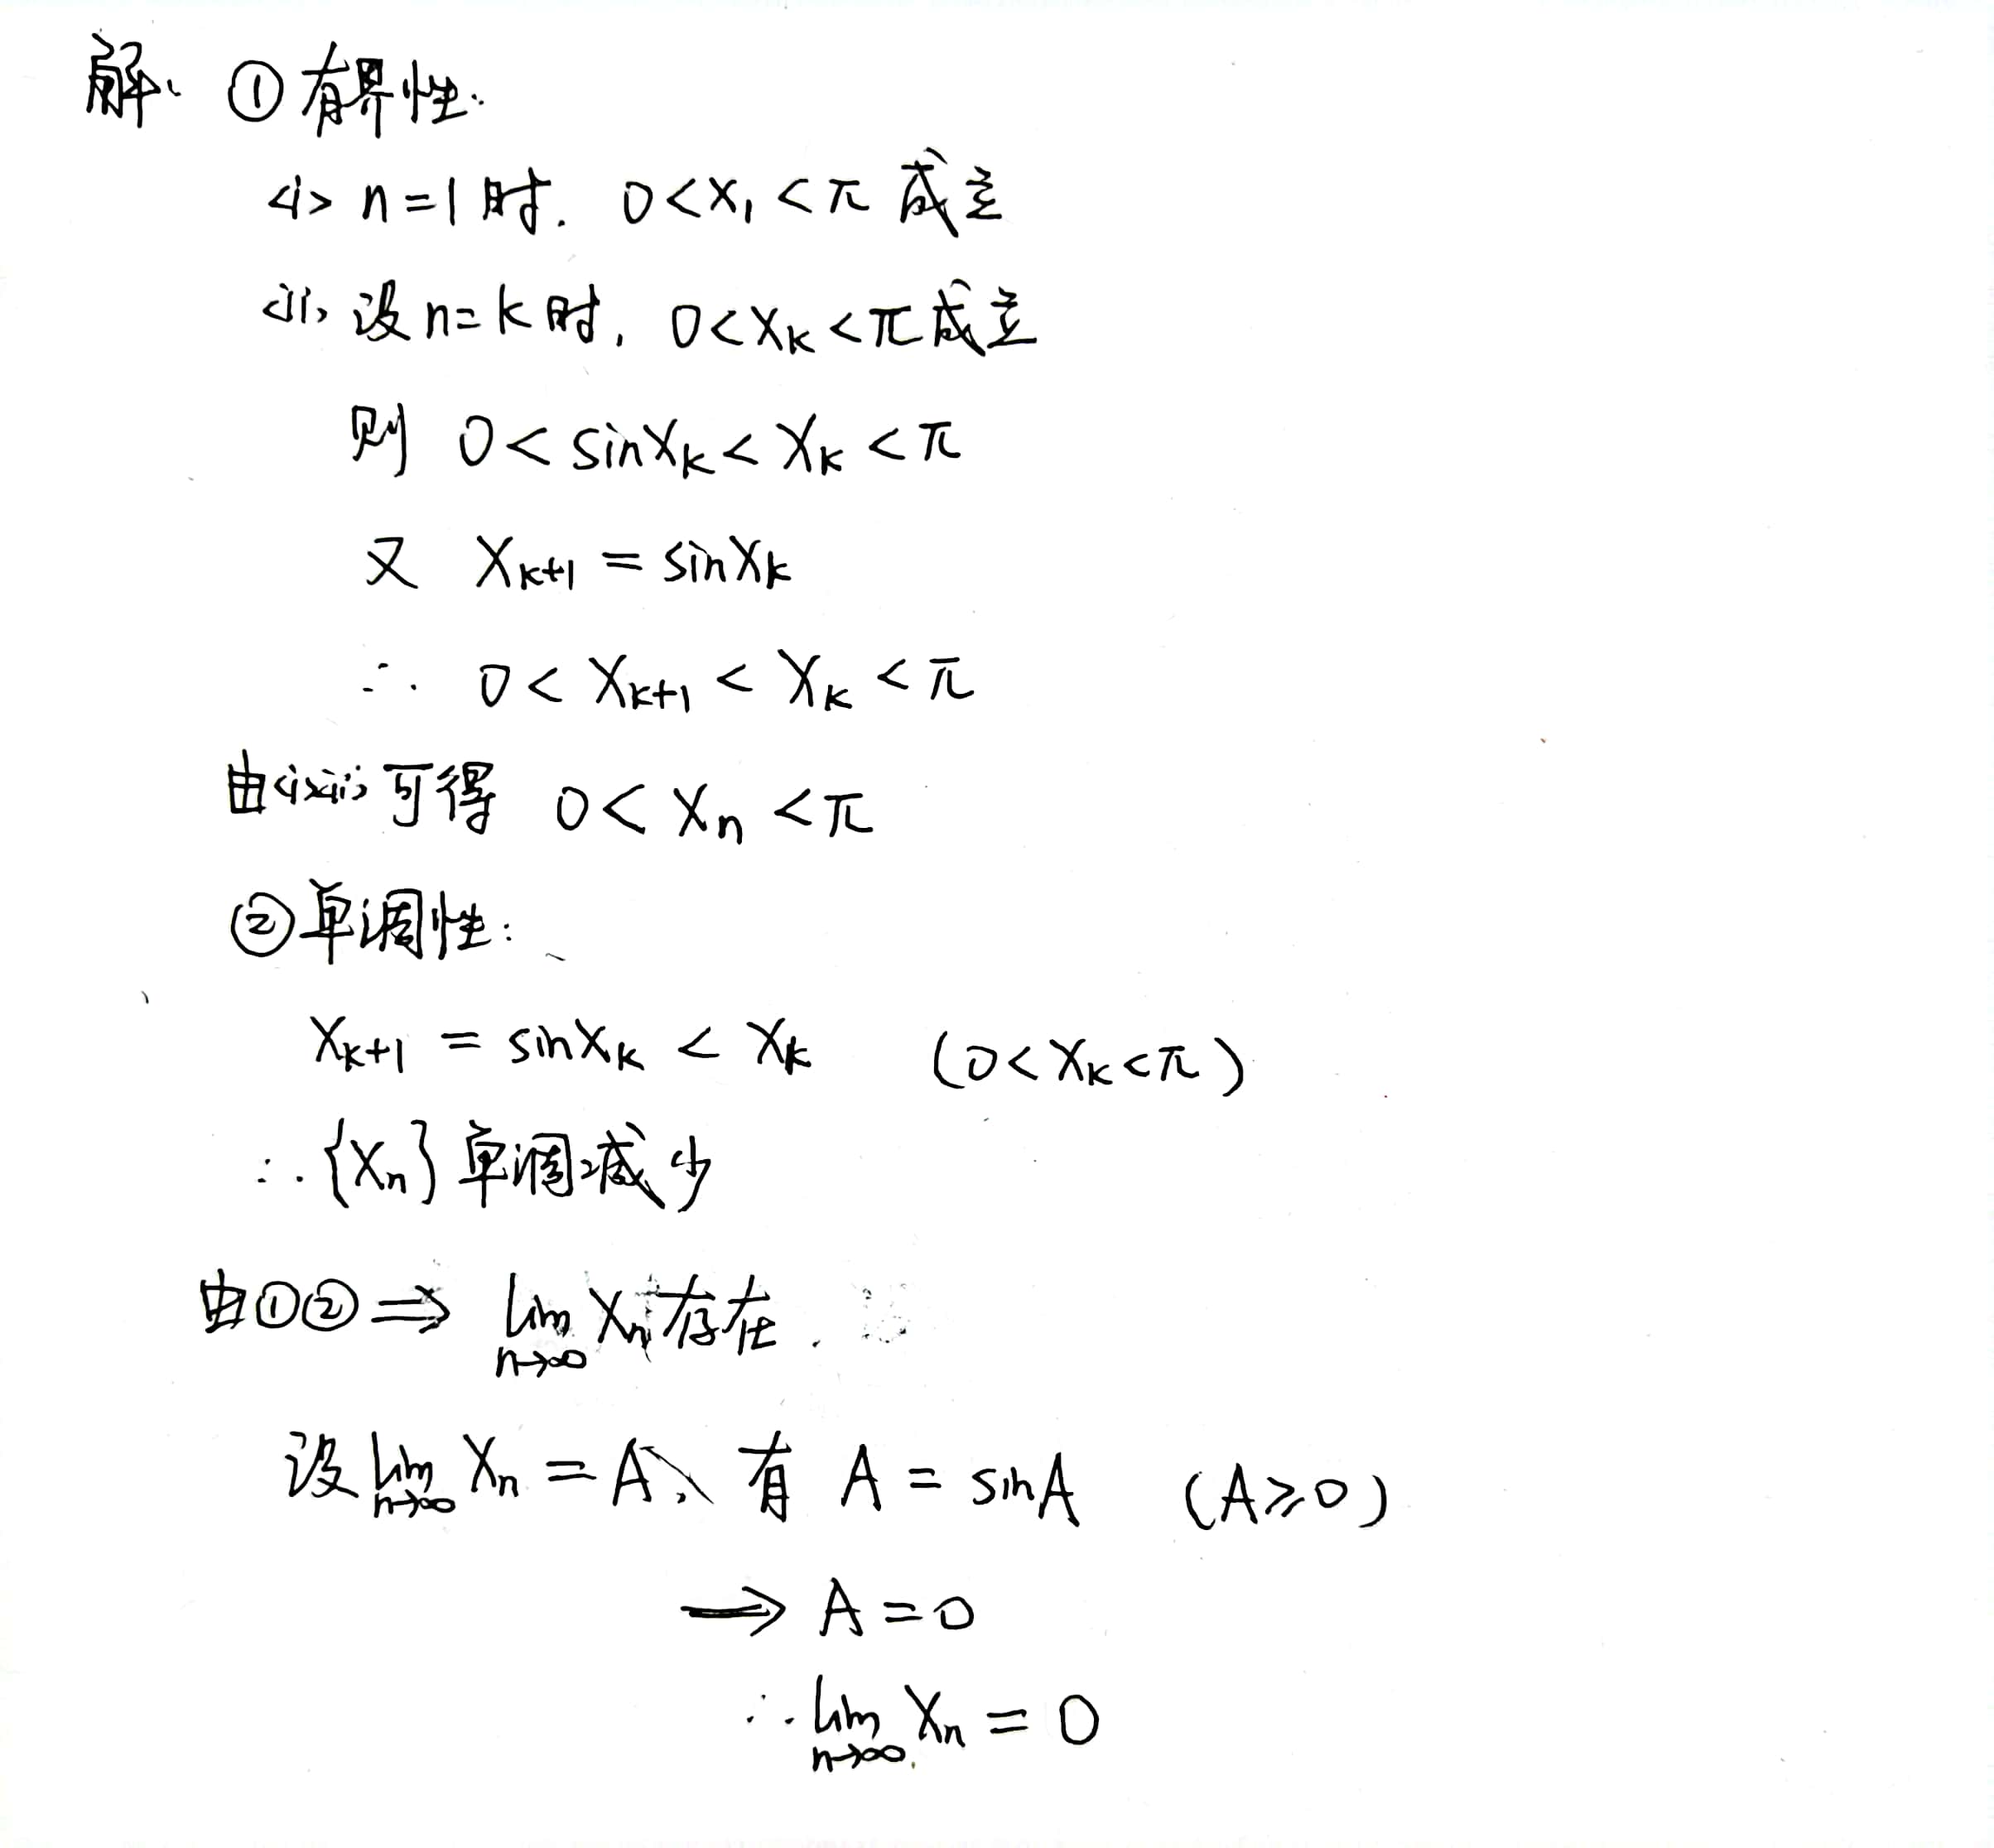 解: ①有界性:
<i> n=1时. 0<x₁<π 成立
<ii> 设n=k时, 0<xₖ<π成立
则 0<sinxₖ<xₖ<π
又 xₖ₊₁=sinxₖ
∴ 0<xₖ₊₁<xₖ<π
由<i><ii>可得 0<xₙ<π
②单调性:
xₖ₊₁=sinxₖ<xₖ (0<xₖ<π)
∴{xₙ}单调减少
由①②⇒ lim n→∞ xₙ存在.
设lim n→∞ xₙ=A、有 A=sinA (A≥0)
→ A=0
∴lim n→∞ xₙ=0